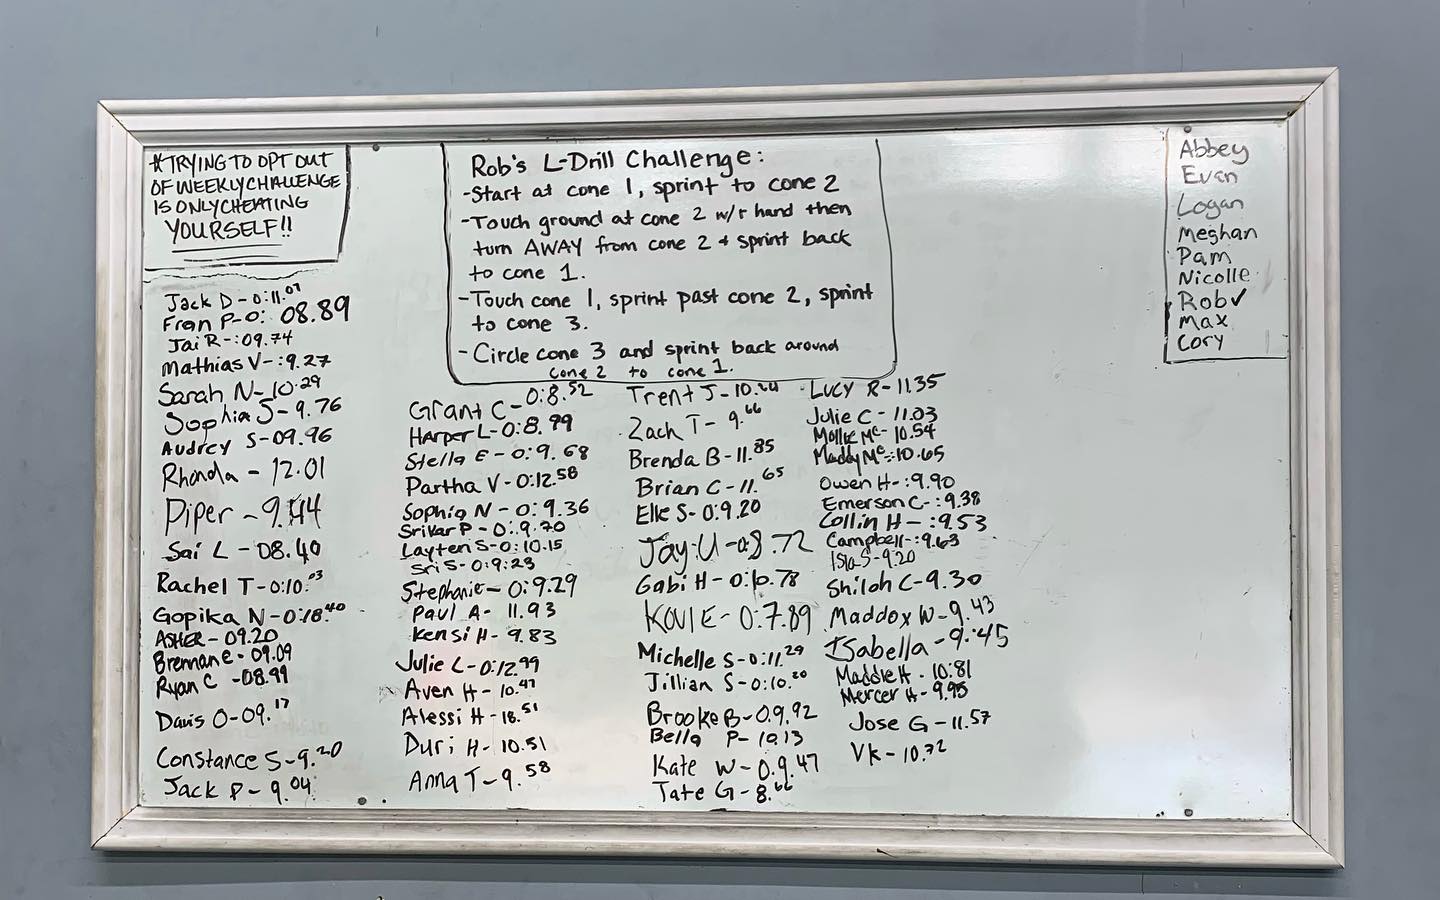 *TRYING TO OPT OUT
OF WEEKLY CHALLENGE
IS ONLY CHEATING
YOURSELF!!
Rob's L-Drill Challenge:
-Start at cone 1, sprint to cone 2
-Touch ground at cone 2 w/r hand then
turn AWAY from cone 2 + sprint back
to cone 1.
-Touch cone 1, sprint past cone 2, sprint
to cone 3.
-Circle cone 3 and sprint back around
cone 2 to cone 1.
Abbey
Evan
Logan
Meghan
Pam
Nicolle
Rob✓
Max
Cory
Jack D-0:11.07
Fran P-0: 08.89
Jai R-:09.74
Mathias V-:9.27
Sarah N-10.29
Sophia S-9.76
Audrey S-09.96
Rhonda - 12.01
Piper - 9.44
Sai L - 08.40
Rachel T-0:10.03
Gopika N-0:18.40
ASHER-09.20
Brennan E-09.09
Ryan C -08.99
Davis O-09.17
Constance S-9.20
Jack P-9.04
Grant C-0:8.52
Harper L-0:8.99
Stella E-0:9.68
Partha V-0:12.58
Sophia N-0:9.36
Srikar P-0:9.70
Layten S-0:10.15
Sri S-0:9:23
Stephanie-0:9.29
Paul A- 11.93
Kensi H- 9.83
Julie L-0:12.99
Aven H-10.47
Alessi H-18.51
Duri H-10.51
Anna T-9.58
Trent J-10.24
Zach T- 9.66
Brenda B-11.85
Brian C-11.65
Elle S-0:9.20
Jay U-08.72
Gabi H-0:10.78
-0:7.89
Michelle S-0:11.29
Jillian S-0:10.20
Brooke B-0.9.92
Bella P-10.13
Kate W-0.9.47
Tate G-8.66
LUCY R-11.35
Julie C-11.03
Mollie Mc-10.54
Maddy Mc-:10.65
Owen H-:9.90
Emerson C-:9.38
Collin H-:9.53
Campbell-:9.63
Isla S-9.20
Shiloh C-9.30
Maddox W-9.43
Isabella-9:45
Maddie H-10.81
Mercer H-9.95
Jose G-11.57
VK-10.72